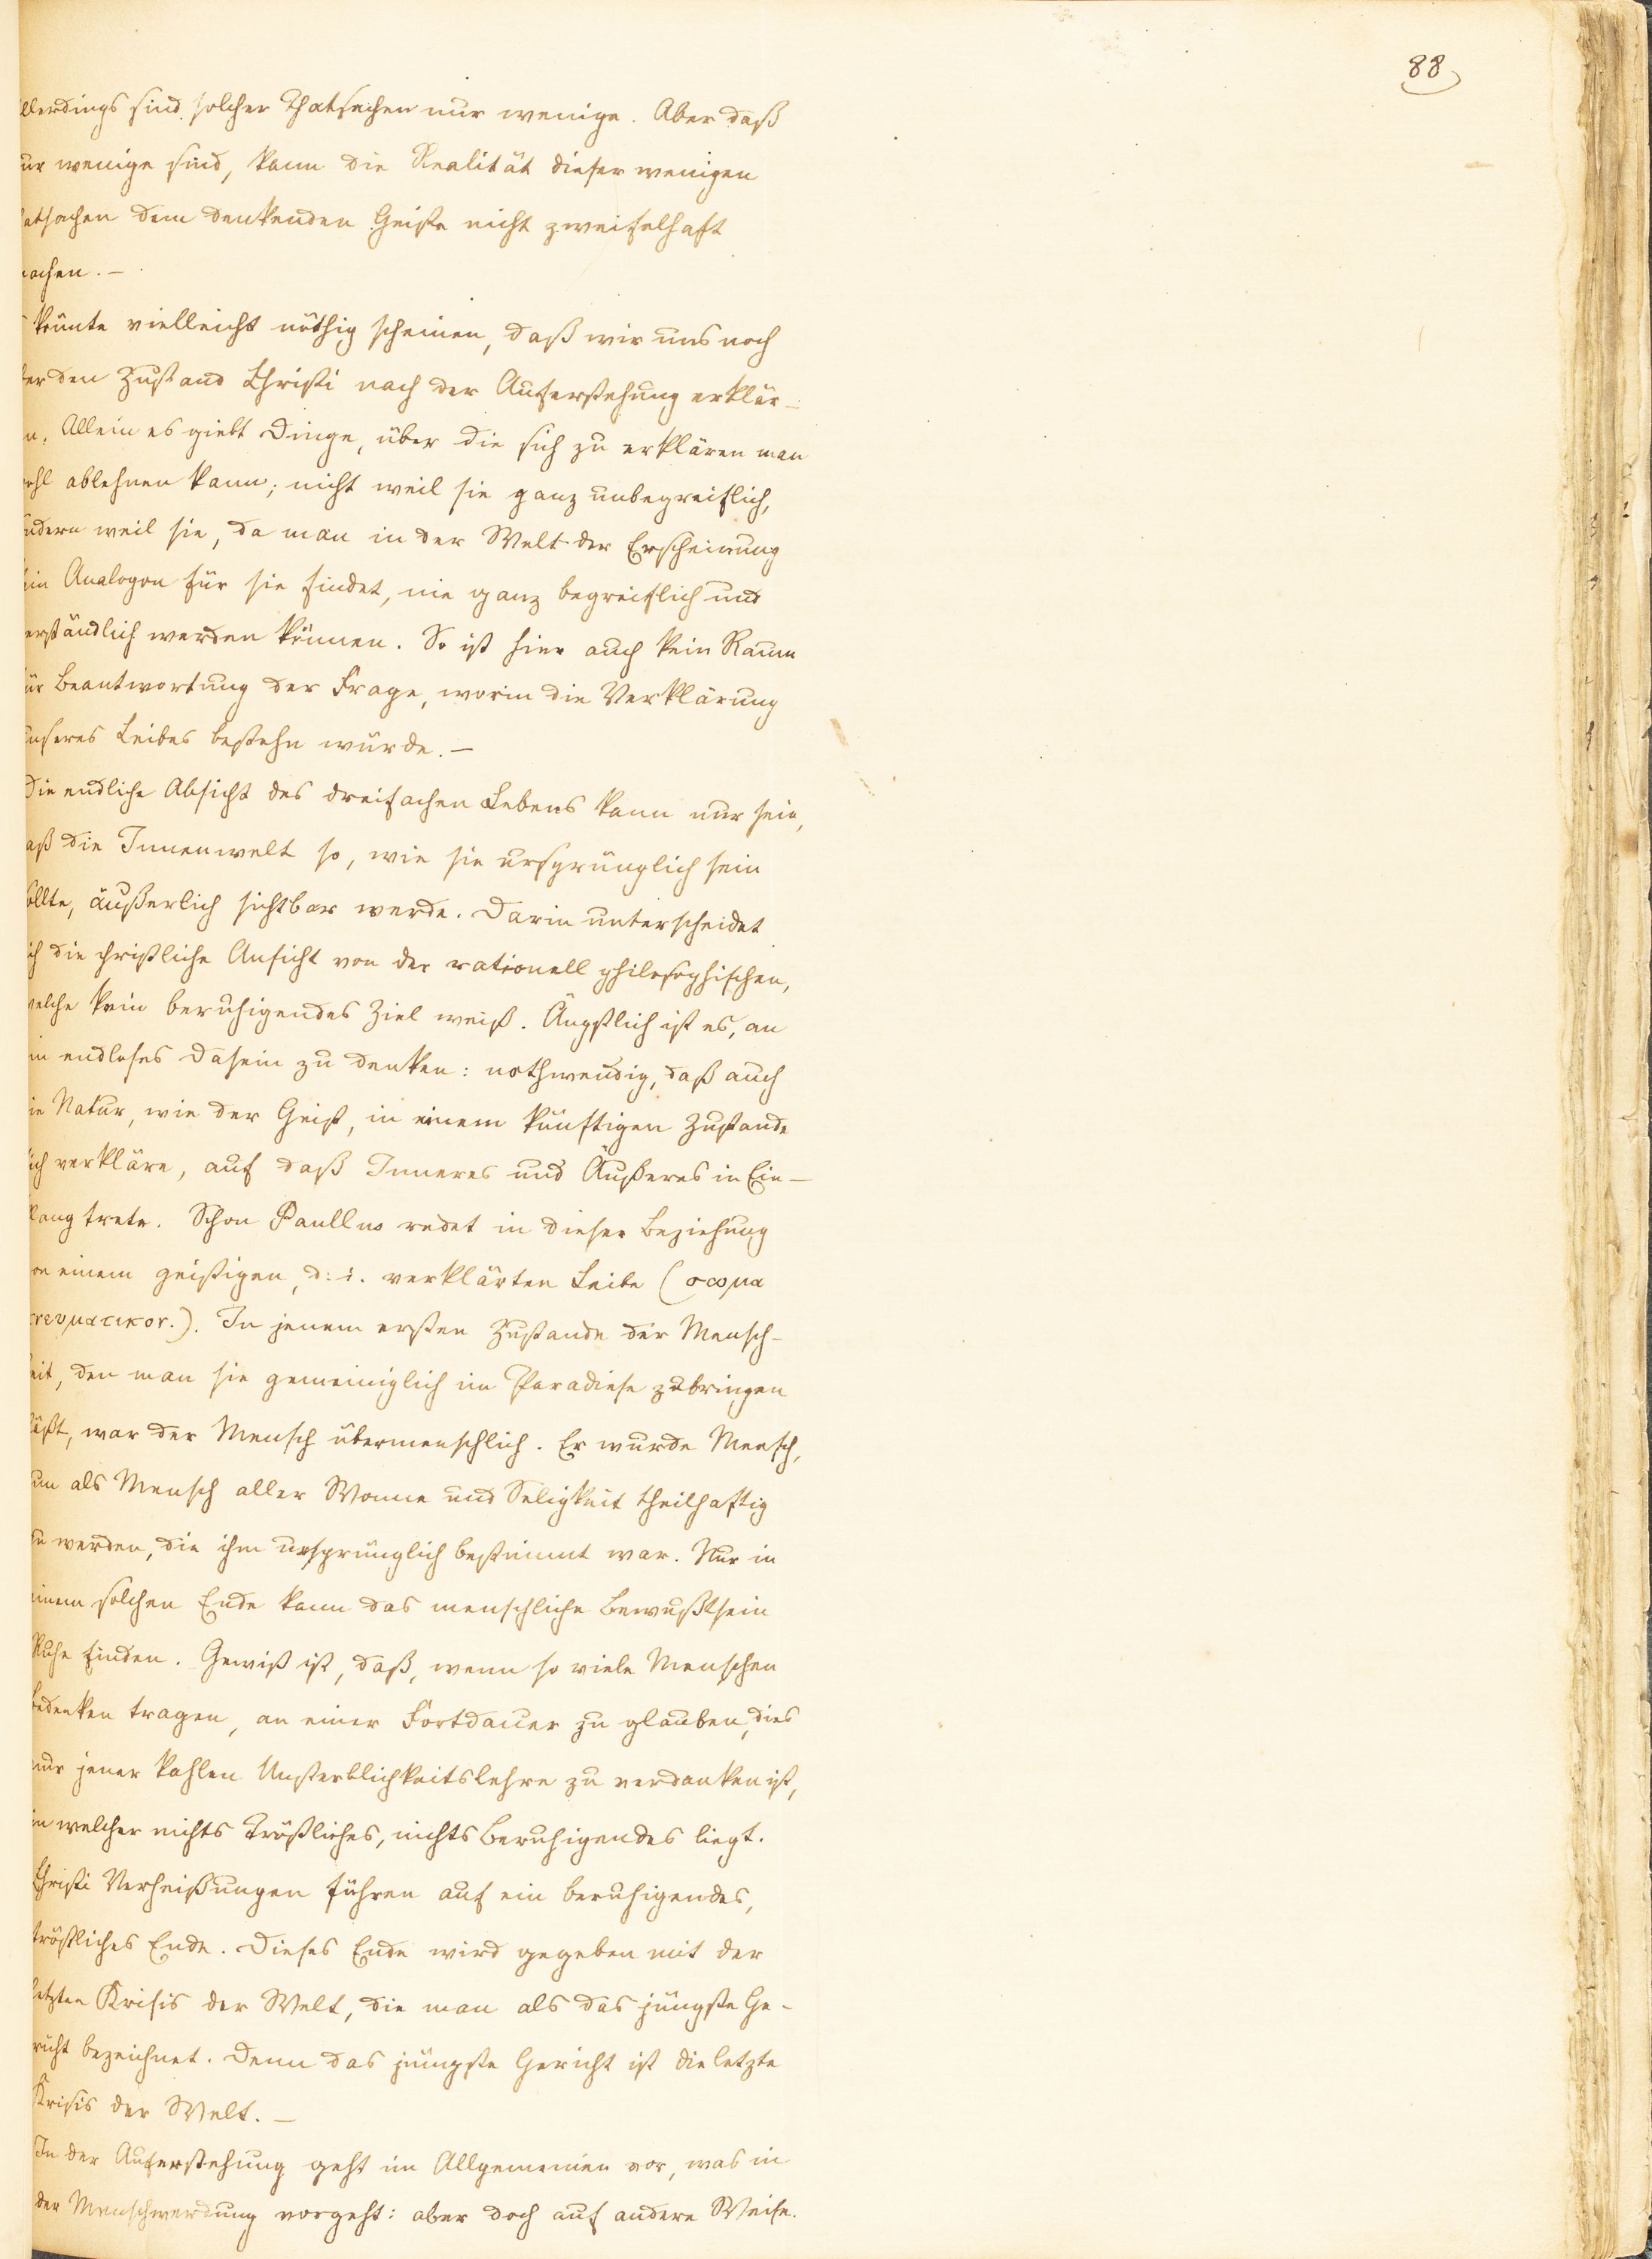 88
llerdings sind solcher Thatsachen nur wenige. Aber daß
ur wenige sind, kann die Realität dieser wenigen
atsachen dem denkenden Geiste nicht zweifelhaft
achen. –
könnte vielleicht nöthig scheinen, daß wir uns noch
er den Zustand Christi nach der Auferstehung erklär-
n. Allein es giebt Dinge, über die sich zu erklären man
ohl ablehnen kann; nicht weil sie ganz unbegreiflich,
ndern weil sie, da man in der Welt der Erscheinung
ein Analogon für sie findet, nie ganz begreiflich und
erständlich werden können. So ist hier auch kein Raum
ür Beantwortung der Frage, worin die Verklärung
unseres Leibes bestehn würde. –
Die endliche Absicht des dreifachen Lebens kann nur sein,
aß die Innenwelt so, wie sie ursprünglich sein
ollte, äußerlich sichtbar werde. Darin unterscheidet
ich die christliche Ansicht von der rationell philosophischen,
welche kein beruhigendes Ziel weiß. Ängstlich ist es, an
in endloses Dasein zu denken: nothwendig, daß auch
ie Natur, wie der Geist, in einem künftigen Zustande
ich verkläre, auf daß Inneres und Äußeres in Ein-
lang trete. Schon Paullus redet in dieser Beziehung
on einem geistigen, d: i. verklärten Leibe (σωμα
πνευματικον.). In jenem ersten Zustande der Mensch-
eit, den man sie gemeiniglich im Paradiese zubringen
läßt, war der Mensch übermenschlich. Er wurde Mensch,
um als Mensch aller Wonne und Seligkeit theilhaftig
zu werden, die ihm ursprünglich bestimmt war. Nur in
einem solchen Ende kann das menschliche Bewußtsein
Ruhe finden. Gewiß ist, daß, wenn so viele Menschen
Bedenken tragen, an einer Fortdauer zu glauben, dies
nur jener kahlen Unsterblichkeitslehre zu verdanken ist,
in welcher nichts Tröstliches, nichts Beruhigendes liegt.
Christi Verheißungen führen auf ein beruhigendes,
tröstliches Ende. Dieses Ende wird gegeben mit der
letzten Krisis der Welt, die man als das jüngste Ge-
richt bezeichnet. Denn das jüngste Gericht ist die letzte
Krisis der Welt. –
In der Auferstehung geht im Allgemeinen vor, was in
der Menschwerdung vorgeht: aber doch auf andere Weise.